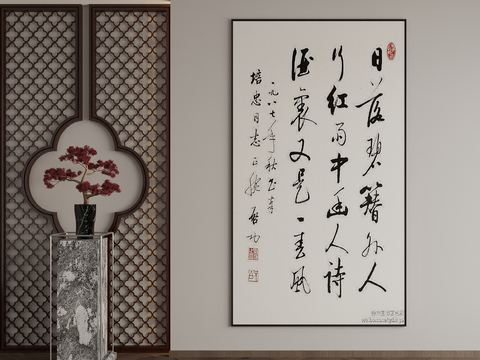 日落碧簪外人
行红雨中幽人诗
酒裏又是一春風
一九八七年秋
培忠同志正腕 启功